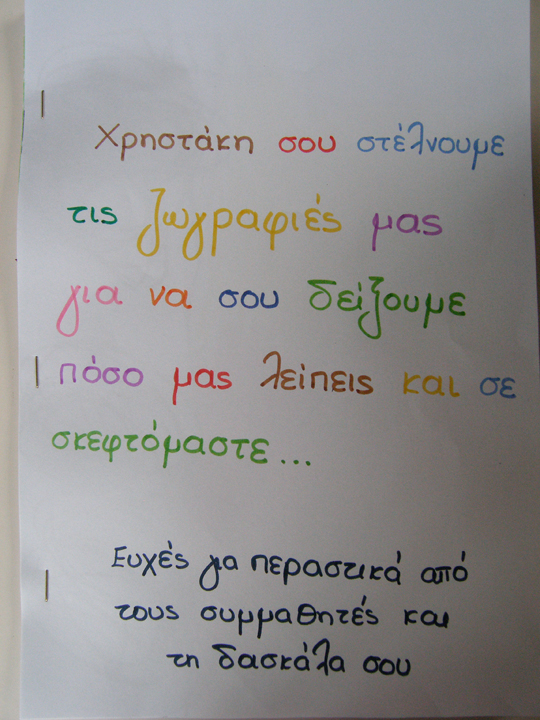 Χρηστάκη σου στέλνουμε
τις ζωγραφιές μας
για να σου δείξουμε
πόσο μας λείπεις και σε
σκεφτόμαστε...
Ευχές για περαστικά από
τους συμμαθητές και
τη δασκάλα σου